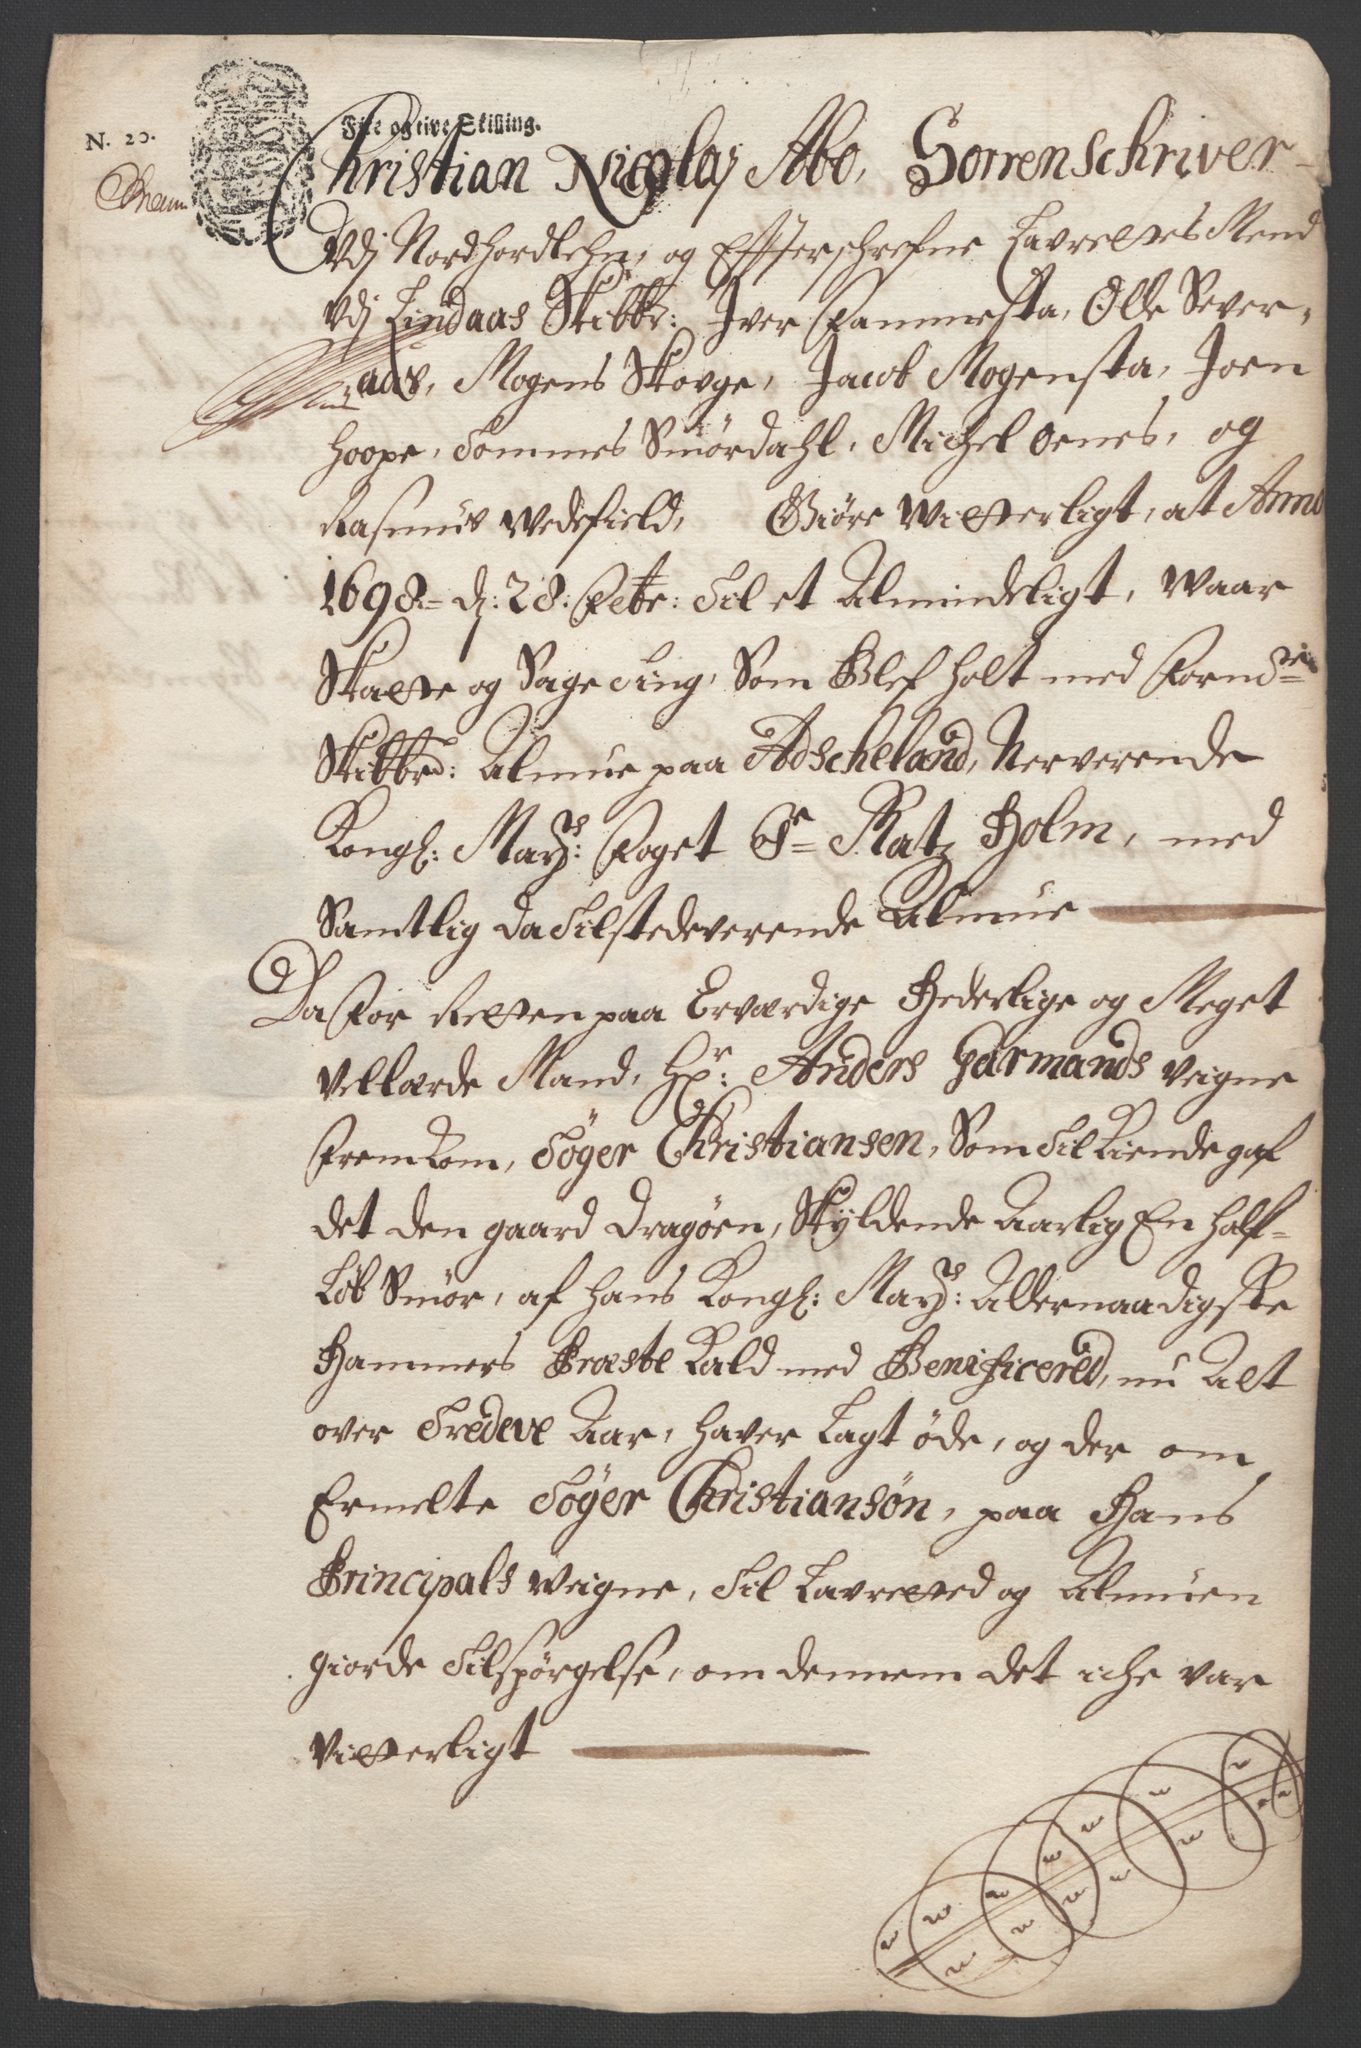 N. 20.
Fire og tive Skilling.
Christian Nicolaj Abo, Sorrenschriver
Vdj Nordhordlehn, og Effterschrefne Lavrettes Mend
Vdj Lindaas Skibbr: Iver Fammesta, Olle Sever-
aas, Mogens Skovge, Jacob Mogensta, Joen
Hoope, Tommes Smørdahl, Michel Oenes, og
Rasmus Wedefield, Giøre Witterligt, at Anno
1698 = dj: 28: Febr: Til et Almindeligt, Waar
Skatte og Sage Ting, Som Blef holt med Formdte
Skibbrd: Almue paa Adscheland, Nerverende
Kongl: Mayts: Foget Sr Ratz Holm, med
Samtlig da Tilstedeverende Almue
Da For Retten paa Erværdige Hederlige og Meget
Vellærde Mand, Hr: Anders Garmands Veigne
Fremkom, Tøger Christiansen, Som Tilkiende gaf
det den gaard Dragøen, Skyldende Aarlig En half
Løb Smør, af Hans Kongl: Mayts: Allernaadigste
Hammers Præste Kald med Benificered, nu Alt
over Tredeve Aar, haver Lagt øde, og der om
Ermelte Tøger Christiansøn, paa Hans
Principals Weigne, Til Lavretted og Almuen
giorde Tilspørgelse, om dennem det iche var
Vitterligt